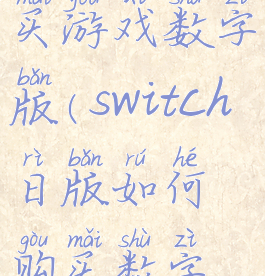 mǎi yóu xì shù zì
买游戏数字
bǎn
版(switch
rì bǎn rú hé
日版如何
gòu mǎi shù zì
购买数字